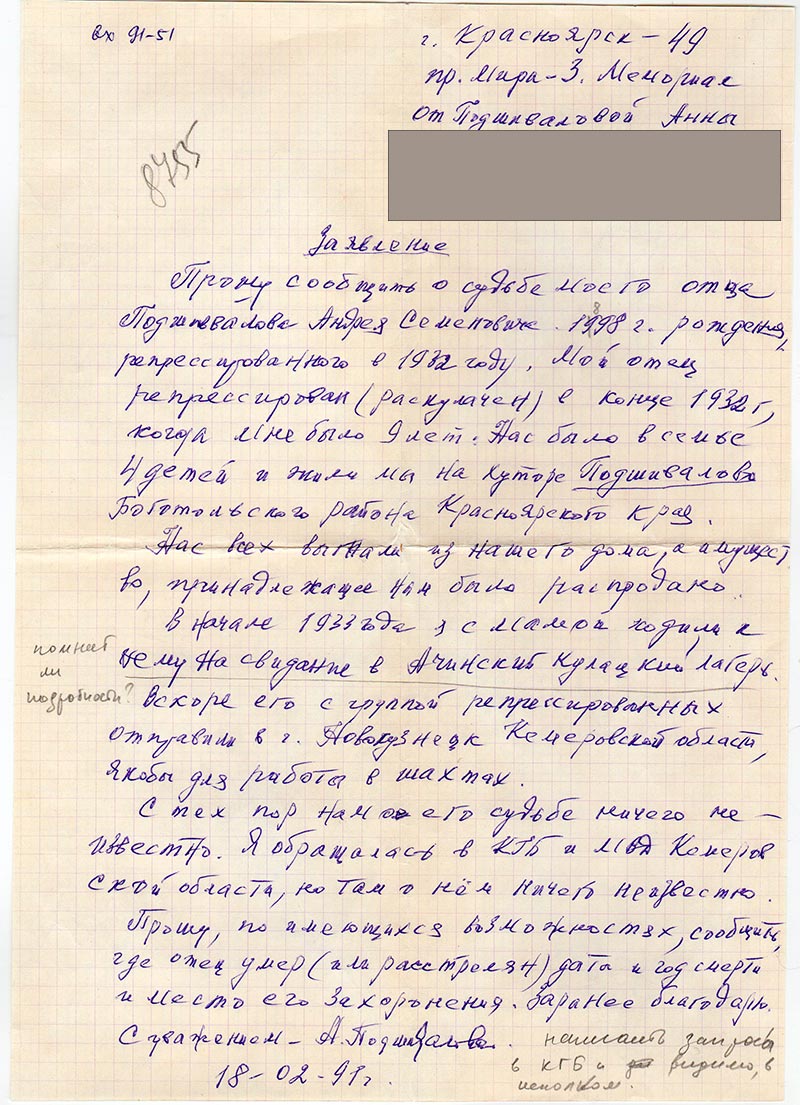 вх 91-51
г. Красноярск - 49
пр. Мира - 3. Мемориал
от Подшиваловой Анны
8755
Заявление
Прошу сообщить о судьбе моего отца
Подшивалова Андрея Семеновича 1898 г. рождения,
репрессированного в 1932 году. Мой отец
репрессирован (раскулачен) в конце 1932 г,
когда мне было 9 лет. Нас было в семье
4 детей и жили мы на хуторе Подшивалово
Боготольского района Красноярского края.
Нас всех выгнали из нашего дома, а имущест
во, принадлежащее нам было распродано.
В начале 1933 года я с мамой ходили к
нему на свидание в Ачинский Кулацкий лагерь.
помнит
ли
подробности?
Вскоре его с группой репрессированных
отправили в г. Новокузнецк Кемеровской области,
якобы для работы в шахтах.
С тех пор нам о его судьбе ничего не-
известно. Я обращалась в КГБ и МВД Кемеров
ской области, но там о нём ничего неизвестно.
Прошу, по имеющихся возможностях, сообщить,
где отец умер (или расстрелян) дата и год смерти
и место его захоронения. Заранее благодарю.
С уважением - А. Подшивалова.
18-02-91г.
написать запросы
в КГБ и видимо, в
исполком.